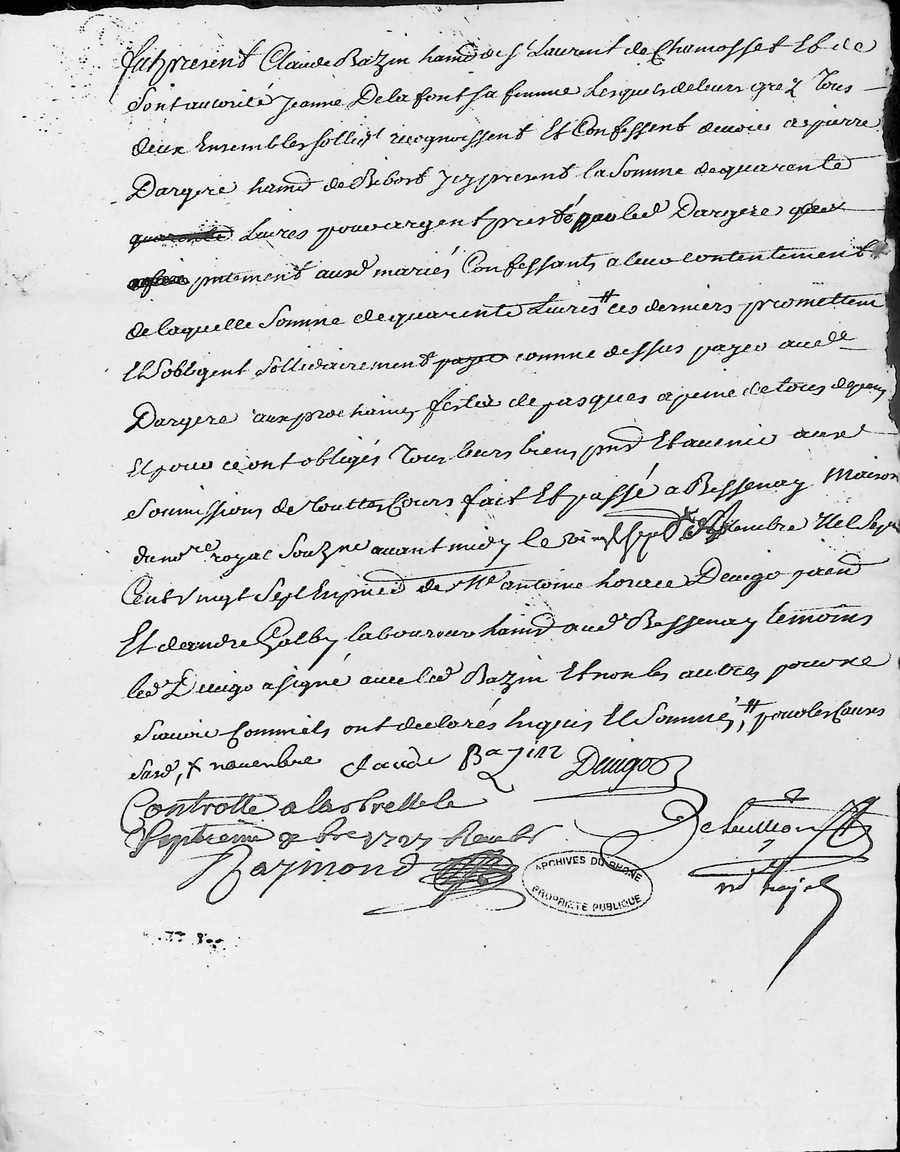 fut present Claude Bazin hantd de St Laurent de Chamosset Et de
Son autorité jeanne Delafont sa femme Lesquels de leurs grez Tous
deux Ensembles sollidt recognoissent Et Confessent devoir a pierre
Dargere hantd de Bibost Icy present la Somme de quarente
Livres pour argent presté par led Dargere
putement ausd mariés Confessants a leur contentement
de laquelle Somme de quarente Livres ces derniers promettent
Et Sobligent sollidairement comme dessus payer aud
Dargere aux prochaines festes de pasques a peine de tous depens
Et pour ce ont obligés Tous leurs biens pnts Et avenir aux
Soumissions de Touttes Cours fait Et passé a Bessenay Maison
du nore royal Souzne avant midy le vingt sept Mil Sept
Cent vingt Sept En pnce de Me antoine horace Denigo
Et de andre laboureur hantd aud Bessenay temoins
led Denigo a signé avec led Bazin Et non les autres pour ne
Scavoir Commils ont declarés Enquis Et Sommés, pour les Causes
susd, x novembre Claude Bazin Denigo
Controllé a Larbrelle le
Septieme 9bre 1727
Raymond
ARCHIVES DU RHONE
PROPRIETE PUBLIQUE
nore royal